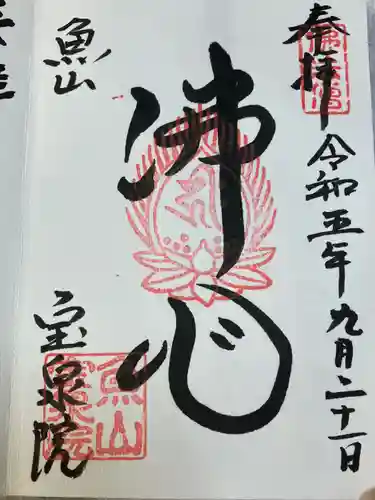 奉拝
令和五年九月二十一日
佛心
魚山
宝泉院
魚山
宝泉院